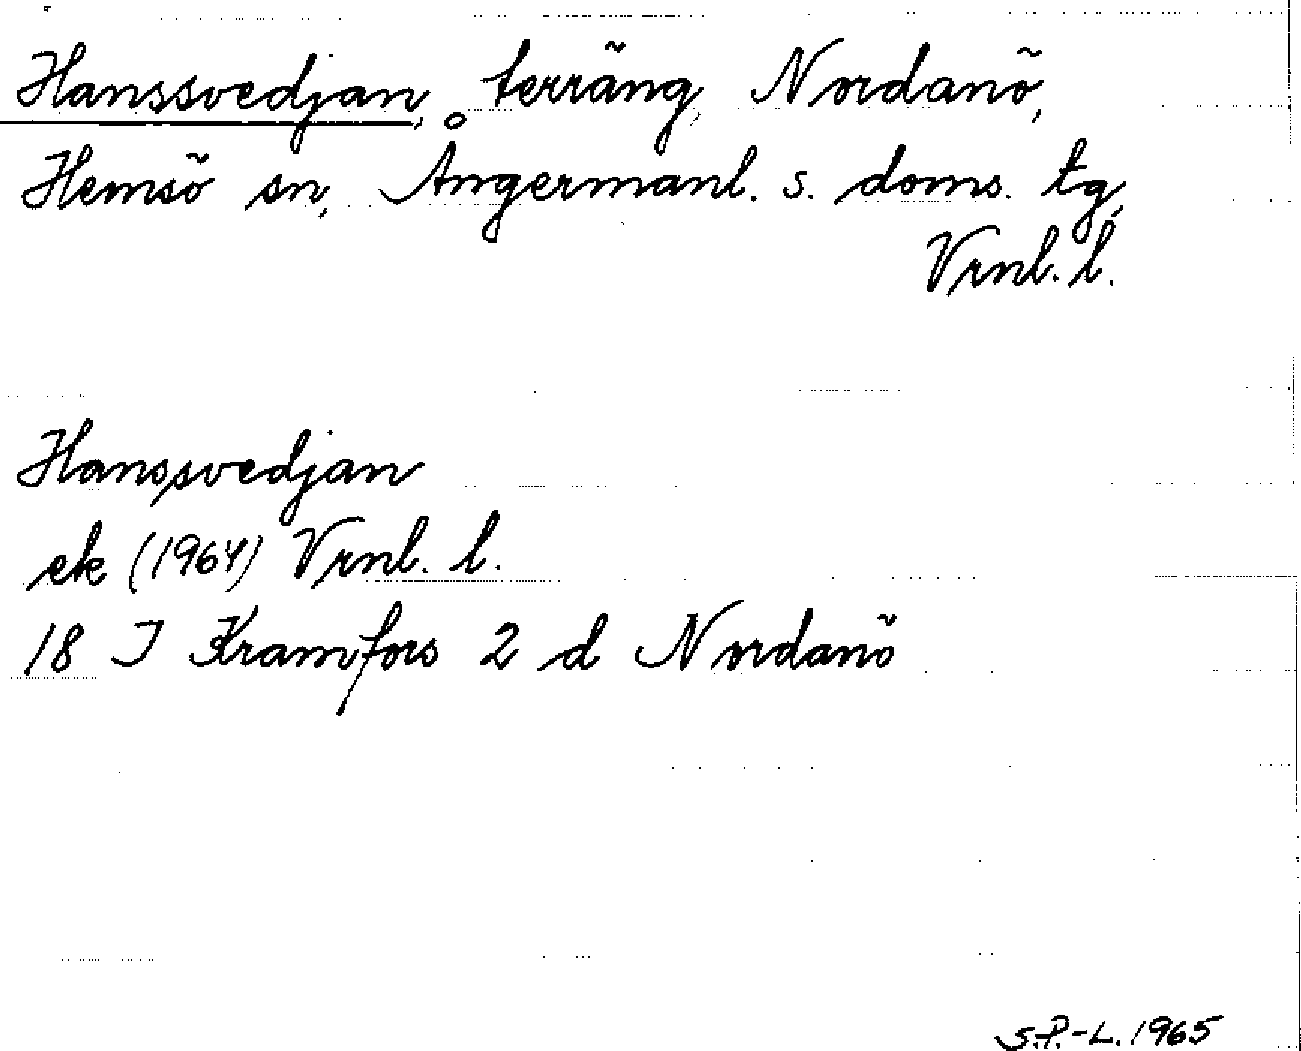 Hanssvedjan, terräng, Nordanö,
Hemsö sn, Ångermanl. s. doms. tg,
Vrnl. l.
Hanssvedjan
ek (1964) Vrnl. l.
18 I Kramfors 2 d Nordanö
S.P.-L. 1965